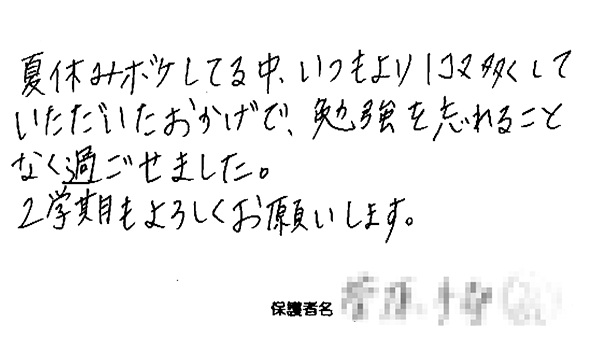 夏休みボケしてる中、いつもより1コマ多くして
いただいたおかげで、勉強を忘れること
なく過ごせました。
2学期もよろしくお願いします。
保護者名